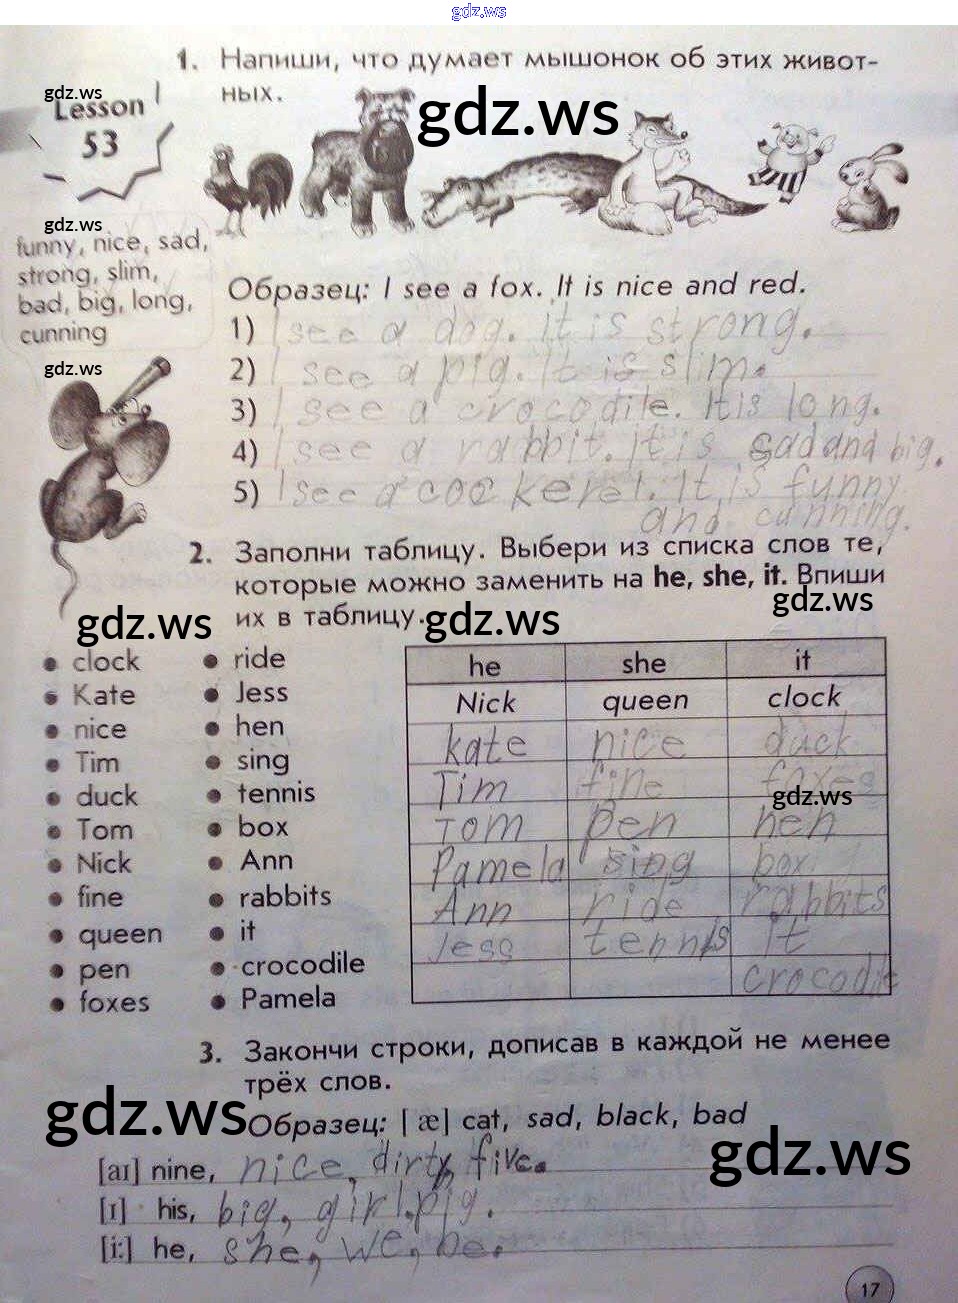 gdz.ws
1. Напиши, что думает мышонок об этих живот-
ных.
gdz.ws
gdz.ws
Lesson
53
gdz.ws
funny, nice, sad,
strong, slim,
bad, big, long,
cunning
gdz.ws
Образец: I see a fox. It is nice and red.
1) I see a dog. it is strong.
2) I see a pig. It is slim.
3) I see a crocodile. It is long.
4) I see a rabbit. it is sad and big.
5) I see a cockerel. It is funny
and cunning.
2. Заполни таблицу. Выбери из списка слов те,
которые можно заменить на he, she, it. Впиши
их в таблицу.
gdz.ws
gdz.ws
gdz.ws
clock
Kate
nice
Tim
duck
Tom
Nick
fine
queen
pen
foxes
ride
Jess
hen
sing
tennis
box
Ann
rabbits
it
crocodile
Pamela
he she it
Nick queen clock
kate nice duck
Tim fine foxes
gdz.ws
Tom pen hen
Pamela sing box
Ann ride rabbits
Jess tennis it
crocodile
3. Закончи строки, дописав в каждой не менее
трёх слов.
gdz.ws
Образец: [æ] cat, sad, black, bad
gdz.ws
[aɪ] nine, nice, dirty, five.
[ɪ] his, big, girl, pig.
[i:] he, she, we, be.
17